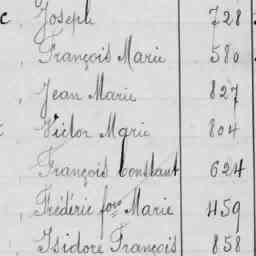 c Joseph 728
François Marie 580
Jean Marie 827
Victor Marie 804
François Constant 624
Frédéric fois Marie 459
Isidore François 858